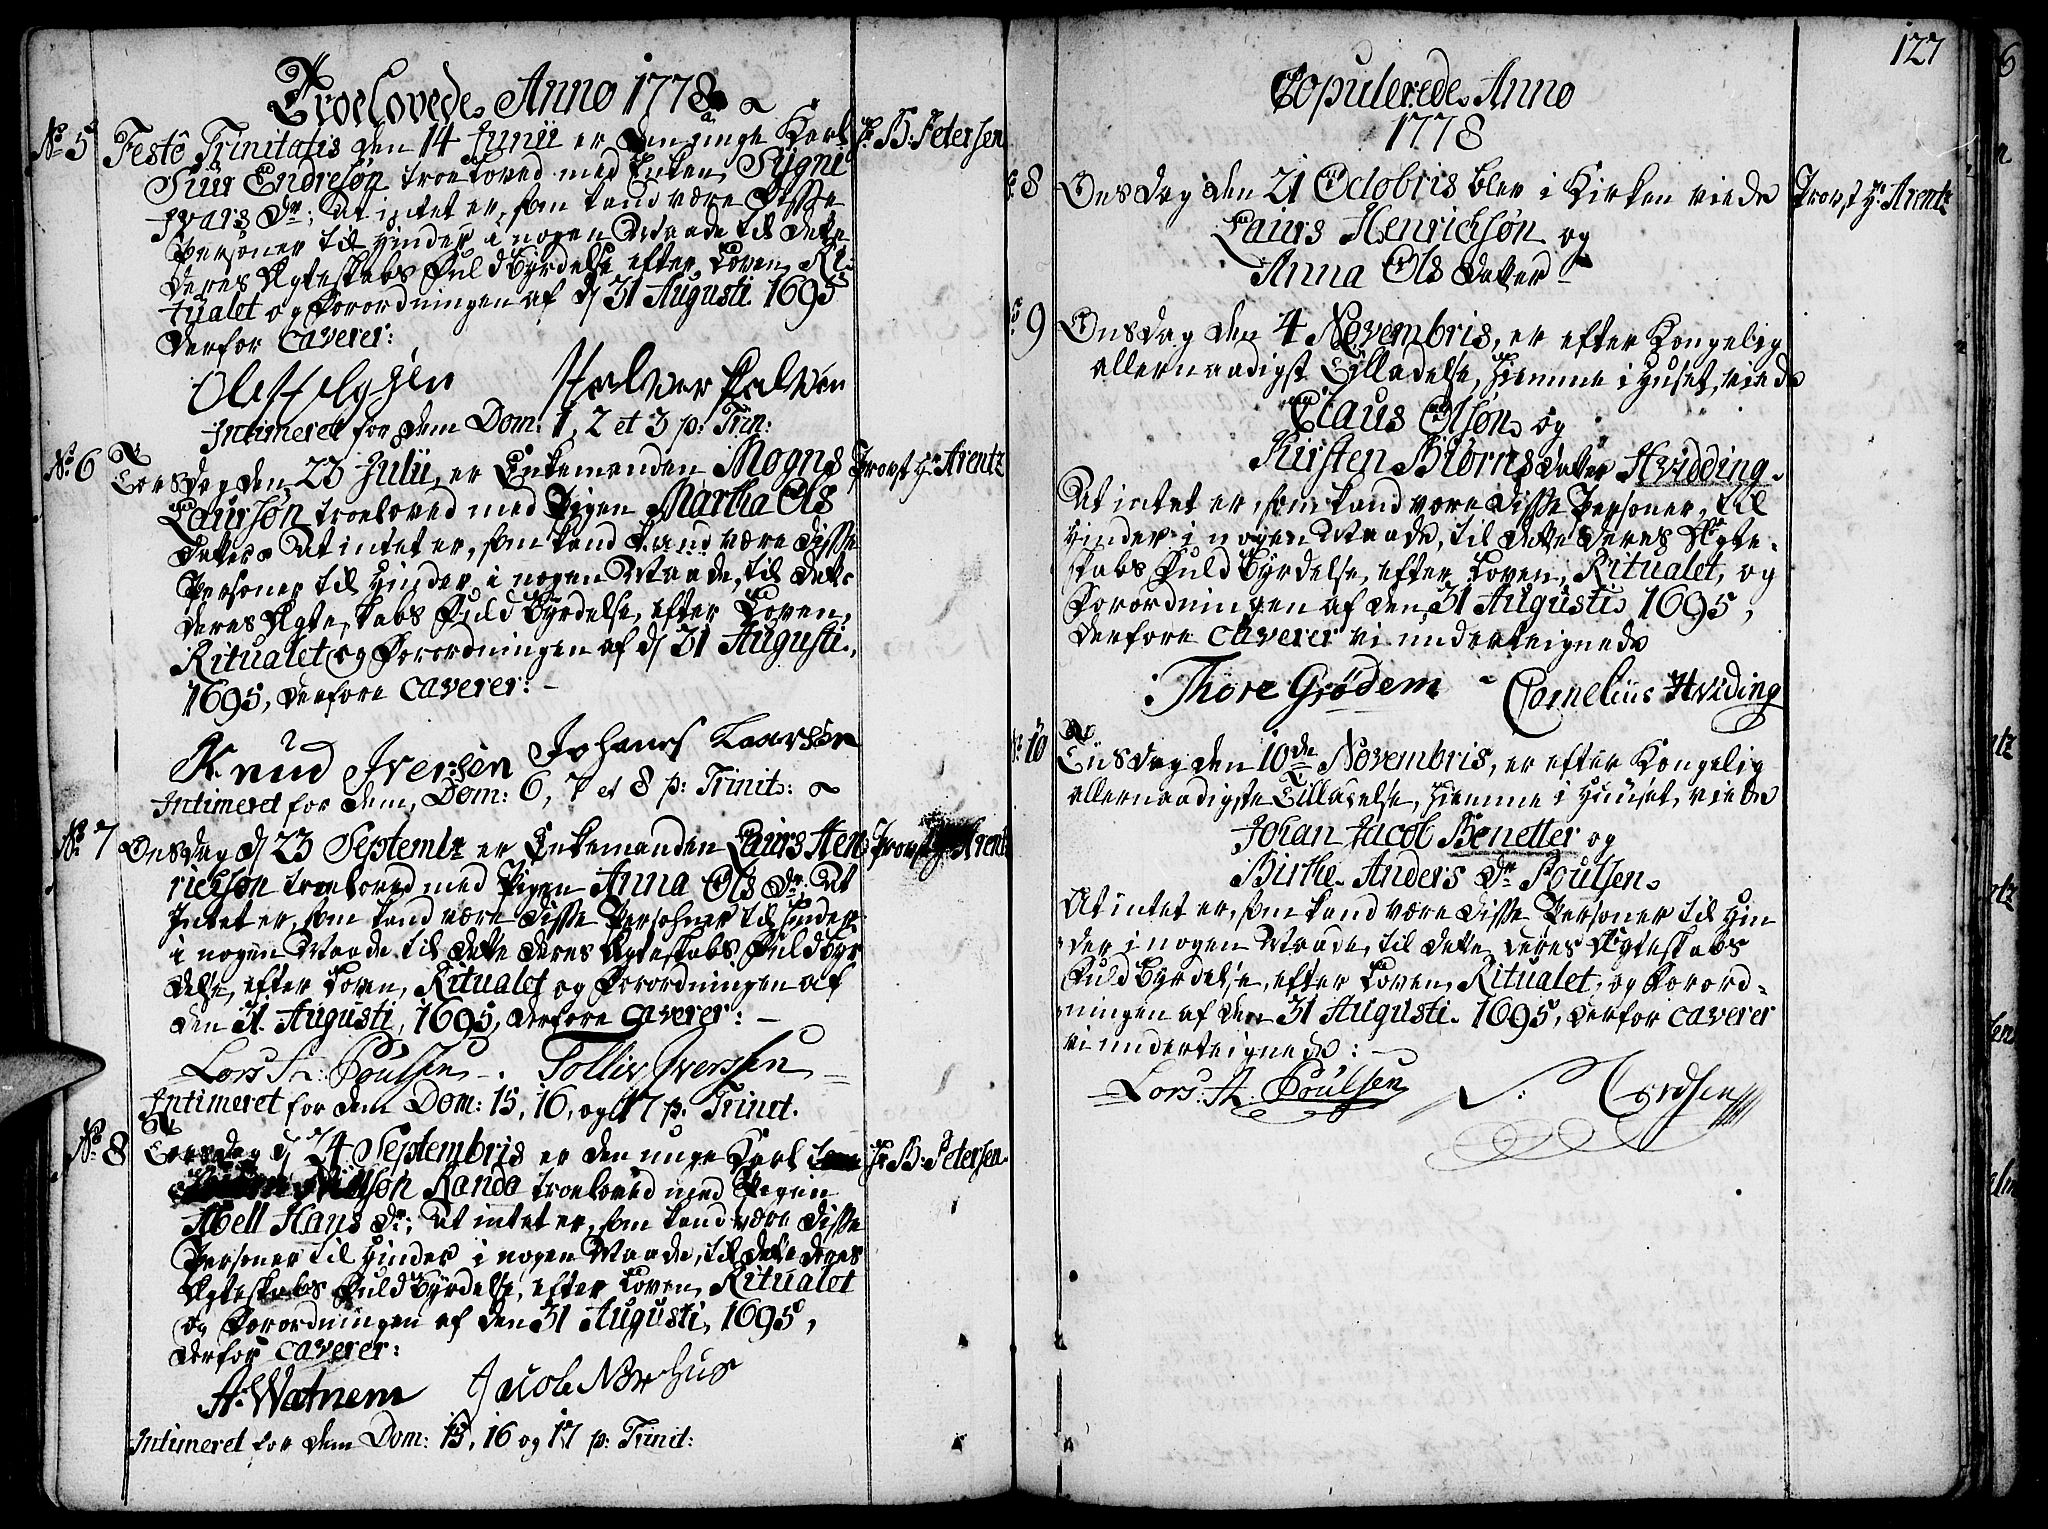 Troelovede Anno 1778
No 5 Festo Trinitatis den 14 Junii er den unge Karl Hr B: Petersen
Siur Endresøn troeloved med Enken Sygni
Ivars Dr: At intet er, som kand være disse
Personer til Hinder i nogen Maade til dette
deres Ægteskabs Fuldbyrdelse efter Loven, Ri-
tualet og Forordningen af d 31 Augusti 1695
derfor caverer:
Ole Helgesen Halver
Intimeret for dem Dom: 1, 2 et 3 p: Trin:
No 6 Torsdag den 23 Julii, er Enkemanden Mogns Provst Hr Arentz
Laursøn troeloved med Pigen Martha Ols
datter. At intet er, som kand kand være disse
Personer til Hinder i nogen Maade, til dette
deres Ægteskabs Fuldbyrdelse, efter Loven,
Ritualet og Forordningen af d 31 Augusti,
1695, derfore caverer: -
Knud Iversen Johanes Laarsøn
Intimeret for dem, Dom: 6, 7 et 8 p: Trinit:
No 7 Onsdag d 23 Septembr er Enkemanden Laurs Hen Provst Hr Arentz
richsøn troeloved med Pigen Anna Ols Dr: At
Intet er, som kand være disse Persohner til Hinder
i nogen Maade til dette deres Ægteskabs Fuldbyr
delse, efter Loven, Ritualet og Forordningen af
den 31. Augusti, 1695, derfore caverer: -
Lors A: Poulsen - . Tolliv Iverssen
Intimeret for dem Dom: 15, 16, og 17 p: Trinit.
No 8 Torsdag d 24 Septembris er den unge Karl Hr B: Petersen
Randa troeloved med Pigen
Abell Hans Dr: At intet er, som kand være disse
Personer til Hinder i nogen Maade, til dette deres
Ægteskabs Fuldbyrdelse, efter Loven, Ritualet
og Forordningen af den 31 Augusti, 1695,
derfor caverer:
A: Watnem Jacob Norhus
Intimeret for dem Dom: 15, 16 og 17 p: Trinit:
127
Copulerede Anno
1778
No 8 Onsdag den 21 Octobris blev i Kirken viede Provst Hr Arentz
Laurs Henrichsøn og
Anna Ols datter
No 9 Onsdag den 4 Novembris, er efter Kongelig
allernaadigst Tilladelse, hiemme i Huset, viede
Claus Olsøn og
Kirsten Biørns datter Hvidding.
At intet er, som kand være disse Personer, til
Hinder i nogen Maade, til dette deres Ægte-
skabs Fuldbyrdelse, efter Loven, Ritualet, og
Forordningen af den 31 Augusti 1695,
derfore caverer vi underteignede
Thore Grødem - Cornelius Hviding
No 10 Tiisdag den 10de Novembris, er efter Kongelig
allernaadigste Tilladelse, hiemme i Huuset, viede
Johan Jacob Benetter og
Birthe Anders Dr Poulsen
At intet er, som kand være disse Personer til Hin
der i nogen Maade, til dette deres Ægteskabs
Fuldbyrdelse, efter Loven, Ritualet, og Forord-
ningen af den 31 Augusti 1695, derfor caverer
vi underteignede: -
Lors: A. Poulsen